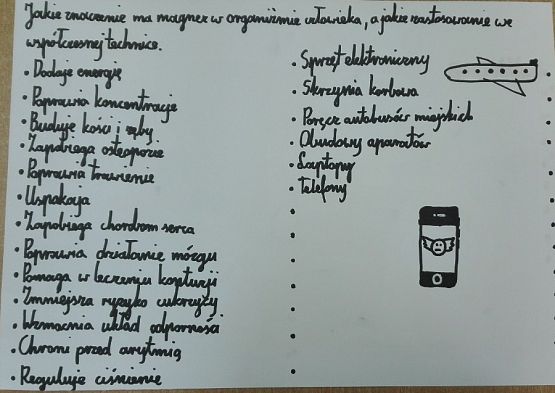 Jakie znaczenie ma magnez w organizmie człowieka, a jakie zastosowanie we
współczesnej technice.
• Dodaje energię
• Poprawia koncentrację
• Buduje kości i zęby
• Zapobiega osteoporozie
• Poprawia trawienie
• Uspokaja
• Zapobiega chorobom serca
• Poprawia działanie mózgu
• Pomaga w leczeniu kontuzji
• Zmniejsza ryzyko cukrzycy
• Wzmacnia układ odporności
• Chroni przed arytmią
• Reguluje ciśnienie
• Sprzęt elektroniczny
• Skrzynia korbowa
• Poręcz autobusów miejskich
• Obudowy aparatów
• Laptopy
• Telefony